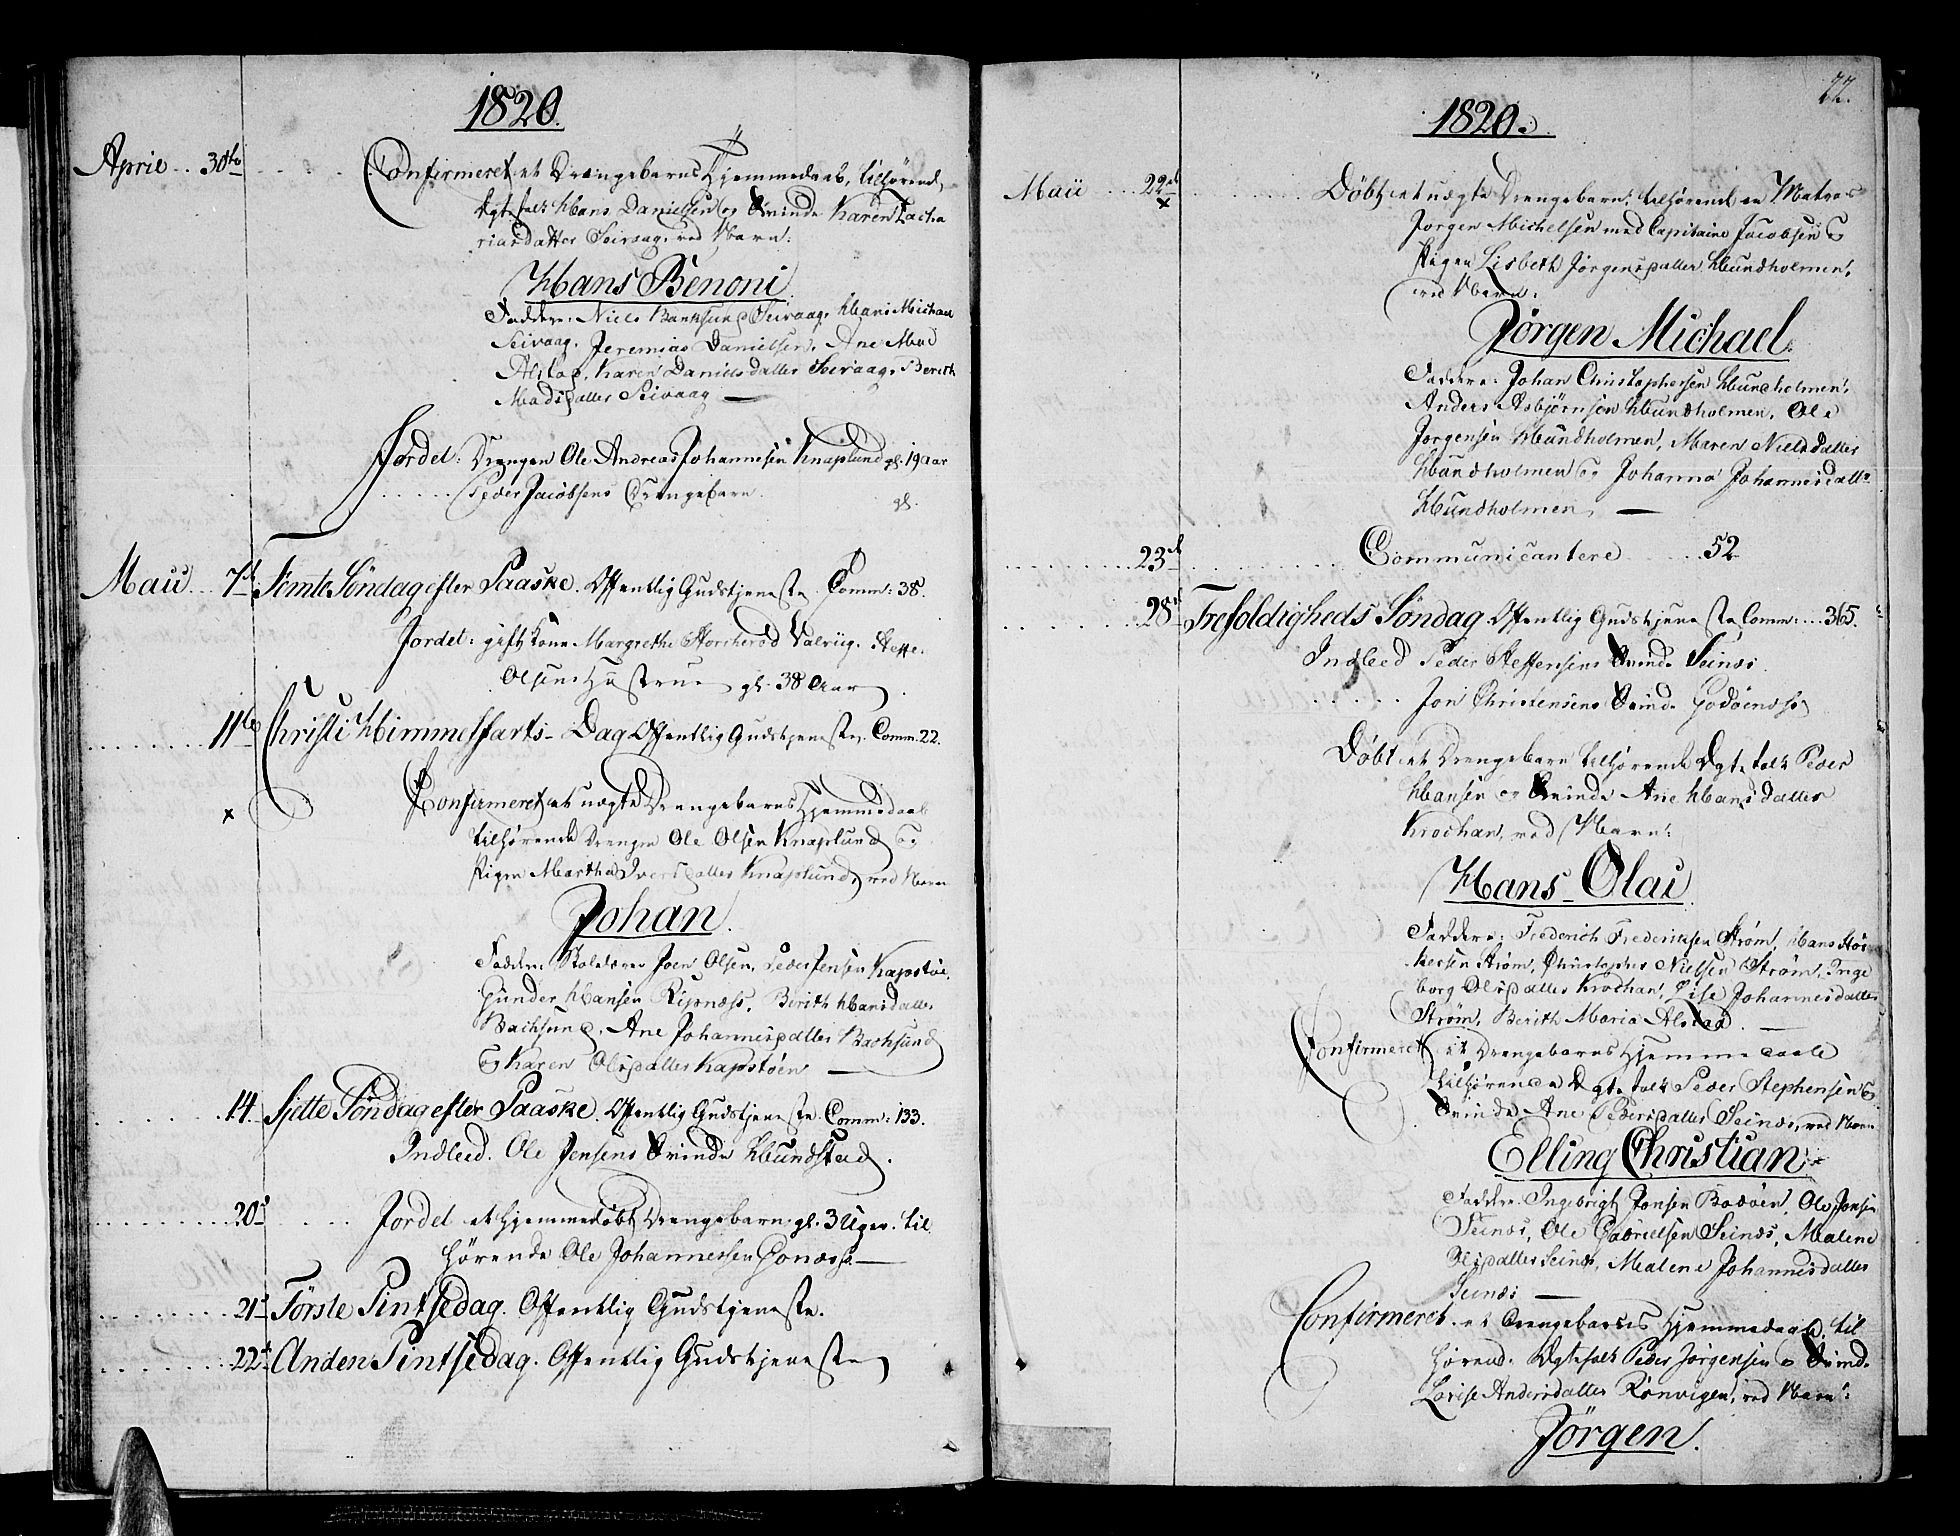 1820.
April ... 30te Confirmeret et Drengebarns Hjemmedaab, tilhørende
Ægtefolk Hans Danielsen og Qvinde Karen Zacha
riasdatter Seivaag, ved Navn:
Hans Benoni
Faddere: Niels Seivaag, Hans Michael
Seivaag, Jeremias Danielsen, Ane Mad
Karen Danielsdatter Seivaag, Berith
Madsdatter Seivaag
Jordet: Drengen Ole Andreas Johannesen Knaplund gl. 19 aar
..... Peder Jacobsens Drengebarn gl.
Maii ... 7d Femte Söndag efter Paaske. Offentlig Gudstjeneste. Comm: 38.
Jordet: gift Kone Margrethe Valvüg, Steffe
Olsens Hustrue gl. 38 Aar
11te Christi Himmelfarts-Dag Offentlig Gudstjeneste. Comm. 22.
x Confirmeret et uægte Drengebarns Hjemmedaab
tilhørende Drengen Ole Olsen Knaplund og
Pigen Martha Iversdatter Knaplund, ved Navn
Johan.
Faddere: Joen Olsen, Peder Jensen Kapstöe,
Gunder Hansen Ripnæss, Berith Hansdatter
Bachsund, Ane Johannesdatter Bachsund
og Karen Olsdatter Kapstöen
14. Sjette Söndag efter Paaske. Offentlig Gudstjeneste. Comm: 133.
Indleed. Ole Jensens Qvinde Hundstad.
20d Jordet et hjemmedöbt Drengebarn gl. 3 Uger. til
hørende Ole Johannessen
21d Förste Pintsedag. Offentlig Gudstjeneste.
22d Anden Pintsedag. Offentlig Gudstjeneste
22.
1820.
Maii .... 22d Döbt et uægte Drengebarn, tilhørende en Matros
x
Jørgen Michelsen med Capitaine Jacobsen og
Pigen Lisbeth Jørgensdatter Hundholmen,
ved Navn:
Jörgen Michael.
Faddere: Johan Christophersen Hundholmen,
Anders Asbjørnsen Hundholmen, Ole
Jørgensen Hundholmen, Maren Nielsdatter
Hundholmen og Johanna Johannesdatter
Hundholmen,
23d Communicantere ..... 52
28d Trefoldigheds Söndag Offentlig Gudstjeneste Comm: ... 365.
Indleed Peder Steffensens Qvinde Seinæs
..... Jon Christensens Qvinde Godöenæss
Döbt et Drengebarn tilhørende Ægtefolk Peder
Hansen og Qvinde Ane Hansdatter
Krochan, ved Navn:
Hans Olai
Faddere: Frederich Frederiksen Ström, Hans
Ström, Christopher Nielsen Ström, Inge
borg Olsdatter Krochan, Johannesdatter
Ström, Berith Maria Alstad.
Confirmeret et Drengebarns Hjemmedaab
tilhørende Ægtefolk Peder Stephensen og
Qvinde Ane Pedersdatter Seinæs, ved Navn
Elling Christian
Faddere: Ingebrigt Jonsen Bodöen, Ole Jonsen
Seinæs, Ole Gabrielsen Seinæs, Malene
Olsdatter Seinæs, Malene Johannesdatter
Seinæs
Confirmeret et Drengebarns Hjemmedaab, til
hørende Ægtefolk Peder Jørgensen og Qvinde
Lovise Andersdatter Rönvigen, ved Navn:
Jörgen.